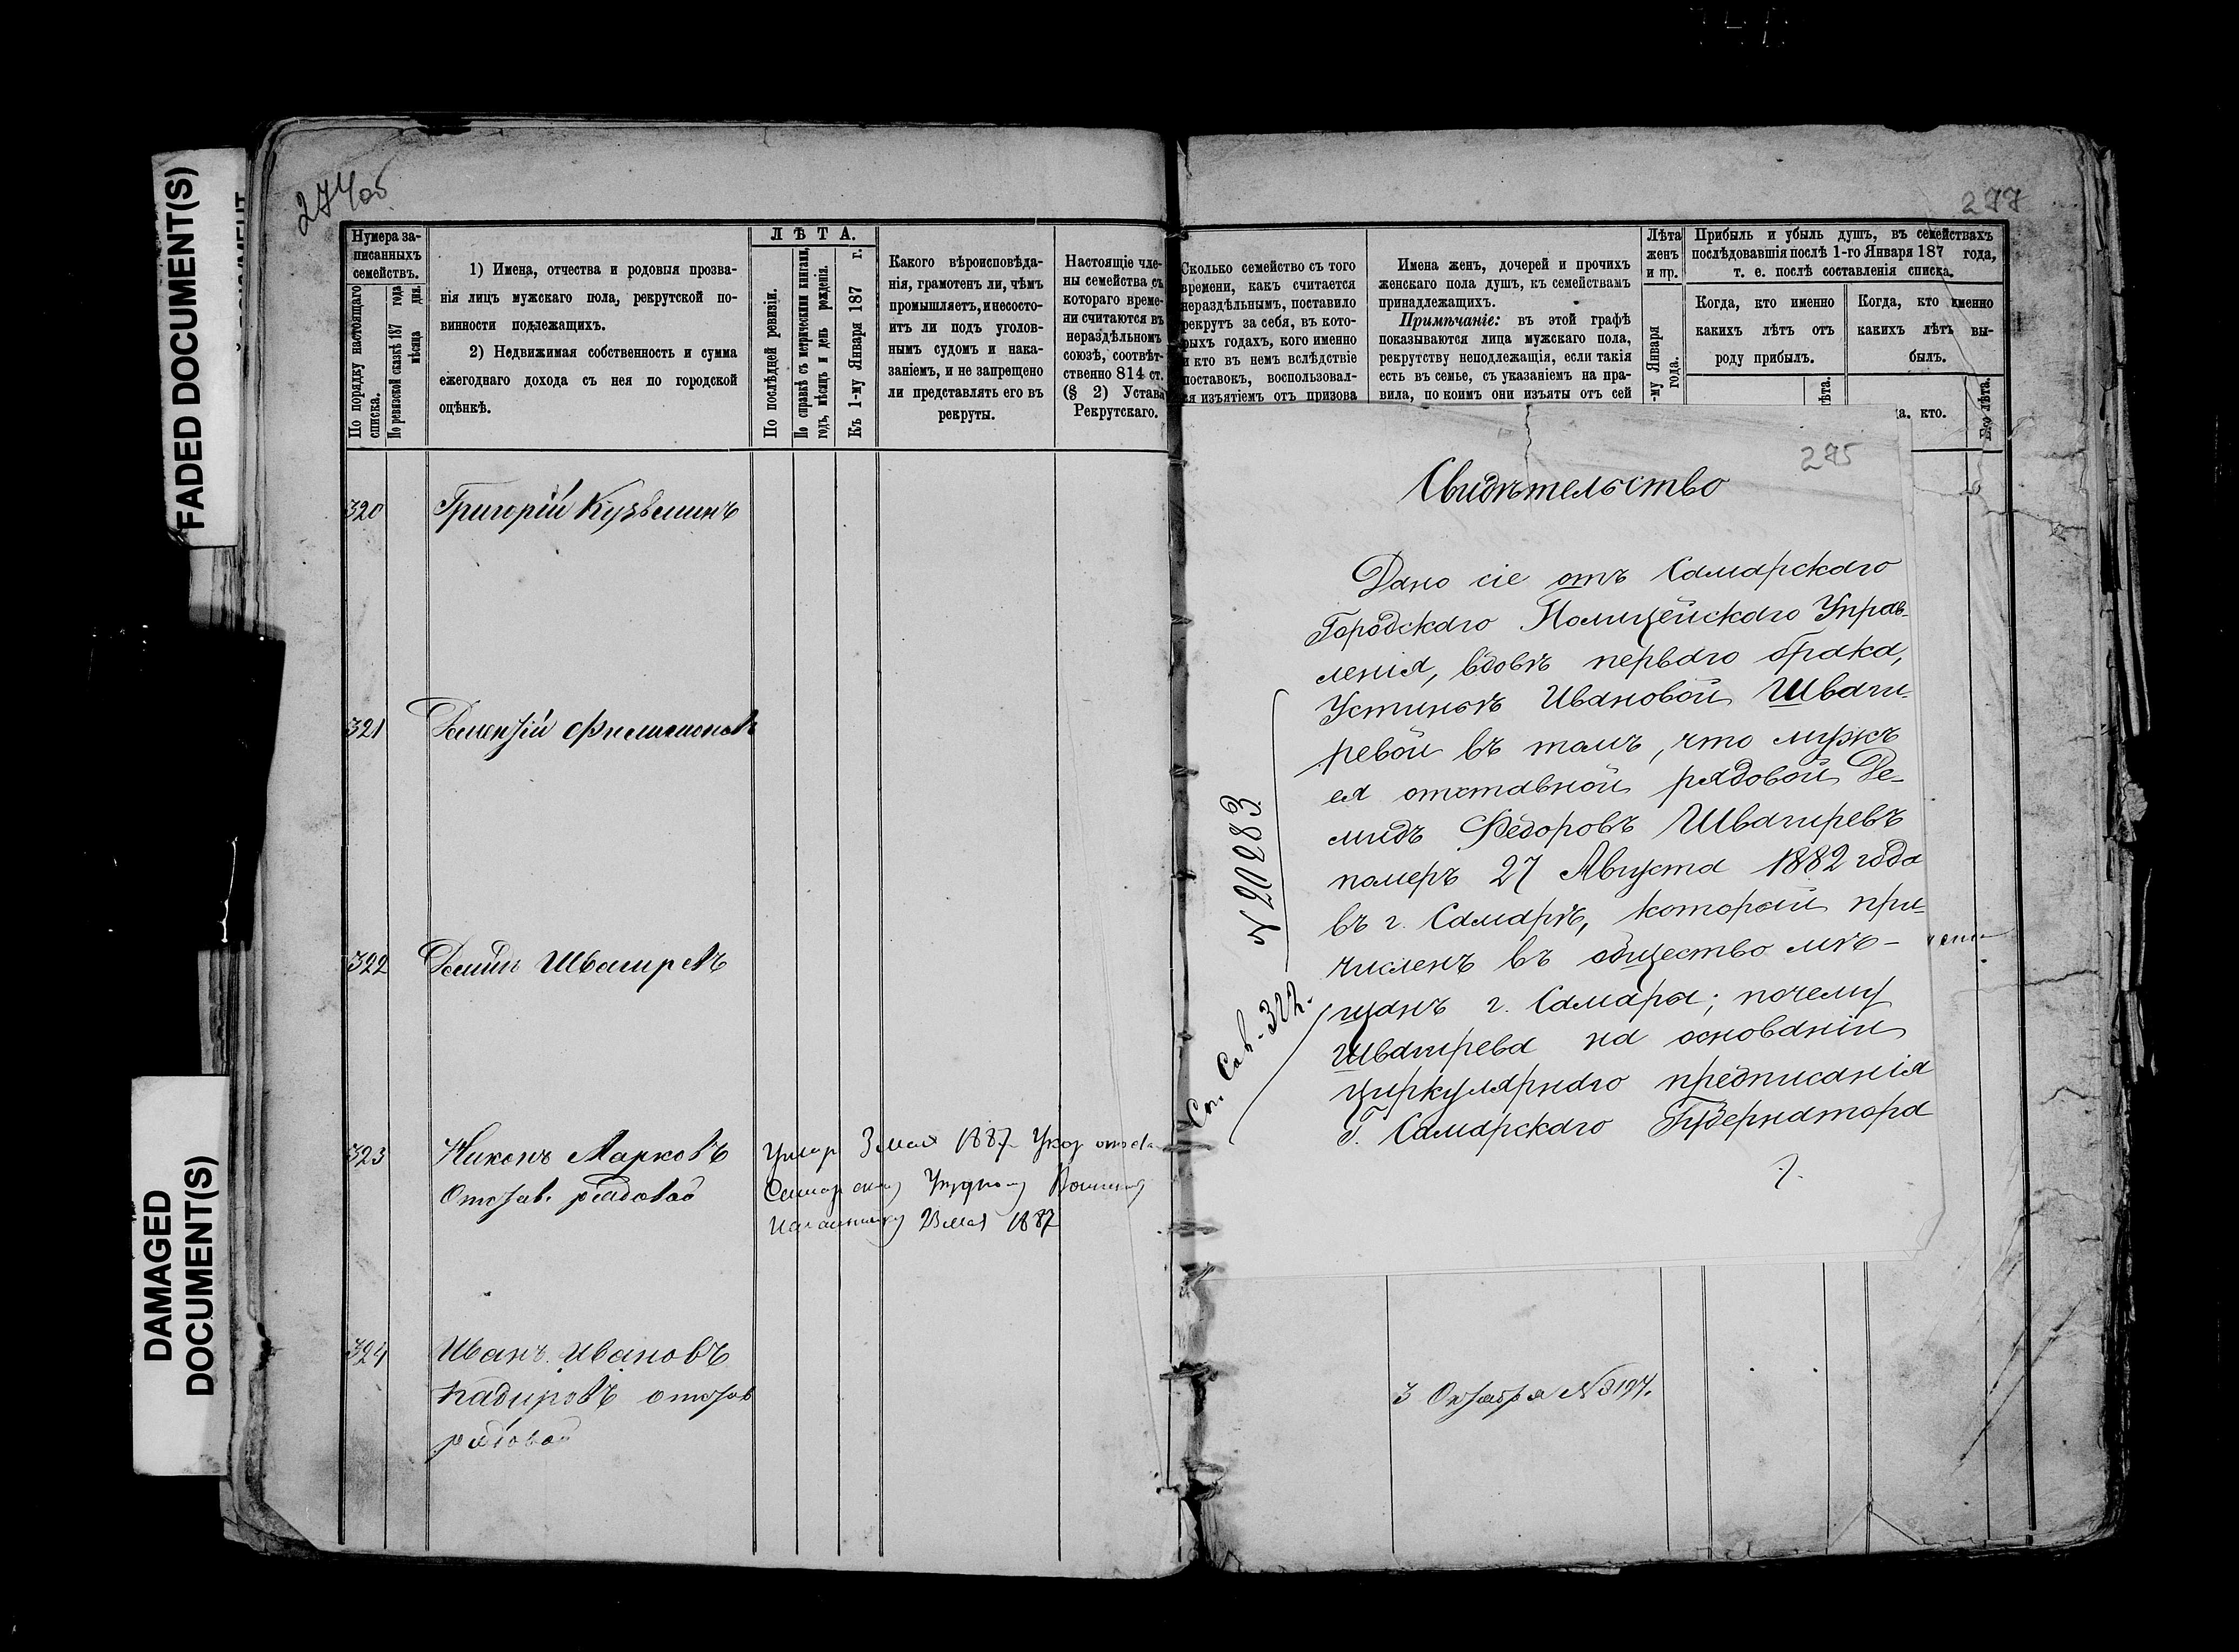 FADED DOCUMENT(S)
DAMAGED
DOCUMENT(S)
274об
Нумера за-
писанныхъ
семействъ.
По порядку настоящаго
списка.
По ревизской сказкѣ 187 года
мѣсяца дня.
1) Имена, отчества и родовыя прозва-
нія лицъ мужскаго пола, рекрутской по-
винности подлежащихъ.
2) Недвижимая собственность и сумма
ежегоднаго дохода съ нея по городской
оцѣнкѣ.
ЛѢТА.
По послѣдней ревизіи.
По справкѣ съ метрическими книгами,
годъ, мѣсяцъ и день рожденія.
Къ 1-му Января 187 г.
Какого вѣроисповѣда-
нія, грамотенъ ли, чѣмъ
промышляетъ, и несосто-
итъ ли подъ уголов-
нымъ судомъ и нака-
заніемъ, и не запрещено
ли представлять его въ
рекруты.
Настоящіе чле-
ны семейства съ
котораго време-
ни считаются въ
нераздѣльномъ
союзѣ, соотвѣт-
ственно 814 ст.
(§ 2) Устава
Рекрутскаго.
320 Григорій Кузьминъ
321 Филимоновъ
322 Демидъ Швагиревъ
323 Никонъ Марковъ
Отстав. рядовой
Умер 3 мая 1887 Указ
23 мая 1887
324 Иванъ Ивановъ
отстав
рядовой
277
Сколько семейство съ того
времени, какъ считается
нераздѣльнымъ, поставило
рекрутъ за себя, въ кото-
рыхъ годахъ, кого именно
и кто въ немъ вслѣдствіе
поставокъ, воспользовал-
ся изъятіемъ отъ призова
Имена женъ, дочерей и прочихъ
женскаго пола душъ, къ семействамъ
принадлежащихъ.
Примѣчаніе: въ этой графѣ
показываются лица мужскаго пола,
рекрутству неподлежащія, если такія
есть въ семье, съ указаніемъ на пра-
вила, по коимъ они изъяты отъ сей
Лѣта
женъ
и пр.
-му Января
года.
Прибыль и убыль душъ, въ семействахъ
послѣдовавшія послѣ 1-го Января 187 года,
т. е. послѣ составленія списка.
Когда, кто именно
какихъ лѣтъ отъ
роду прибылъ.
Когда, кто именно
какихъ лѣтъ вы-
былъ.
ѣта.
а. кто.
Его лѣта.
275
Свидѣтельство
Дано сіе отъ Самарскаго
Городскаго Полицейскаго Управ-
ленія, вдовѣ перваго брака,
Устиньѣ Ивановой Шваги-
ревой въ томъ, что мужъ
ея отставной рядовой Де-
мидъ Федоровъ Швагиревъ
померъ 27 Августа 1882 года
въ г. Самарѣ, который при-
численъ въ общество мѣ-
щанъ г. Самары; почему
Швагирева на основаніи
циркулярнаго предписанія
Г. Самарскаго Губернатора
20283
322.
3 Октября № 3197.